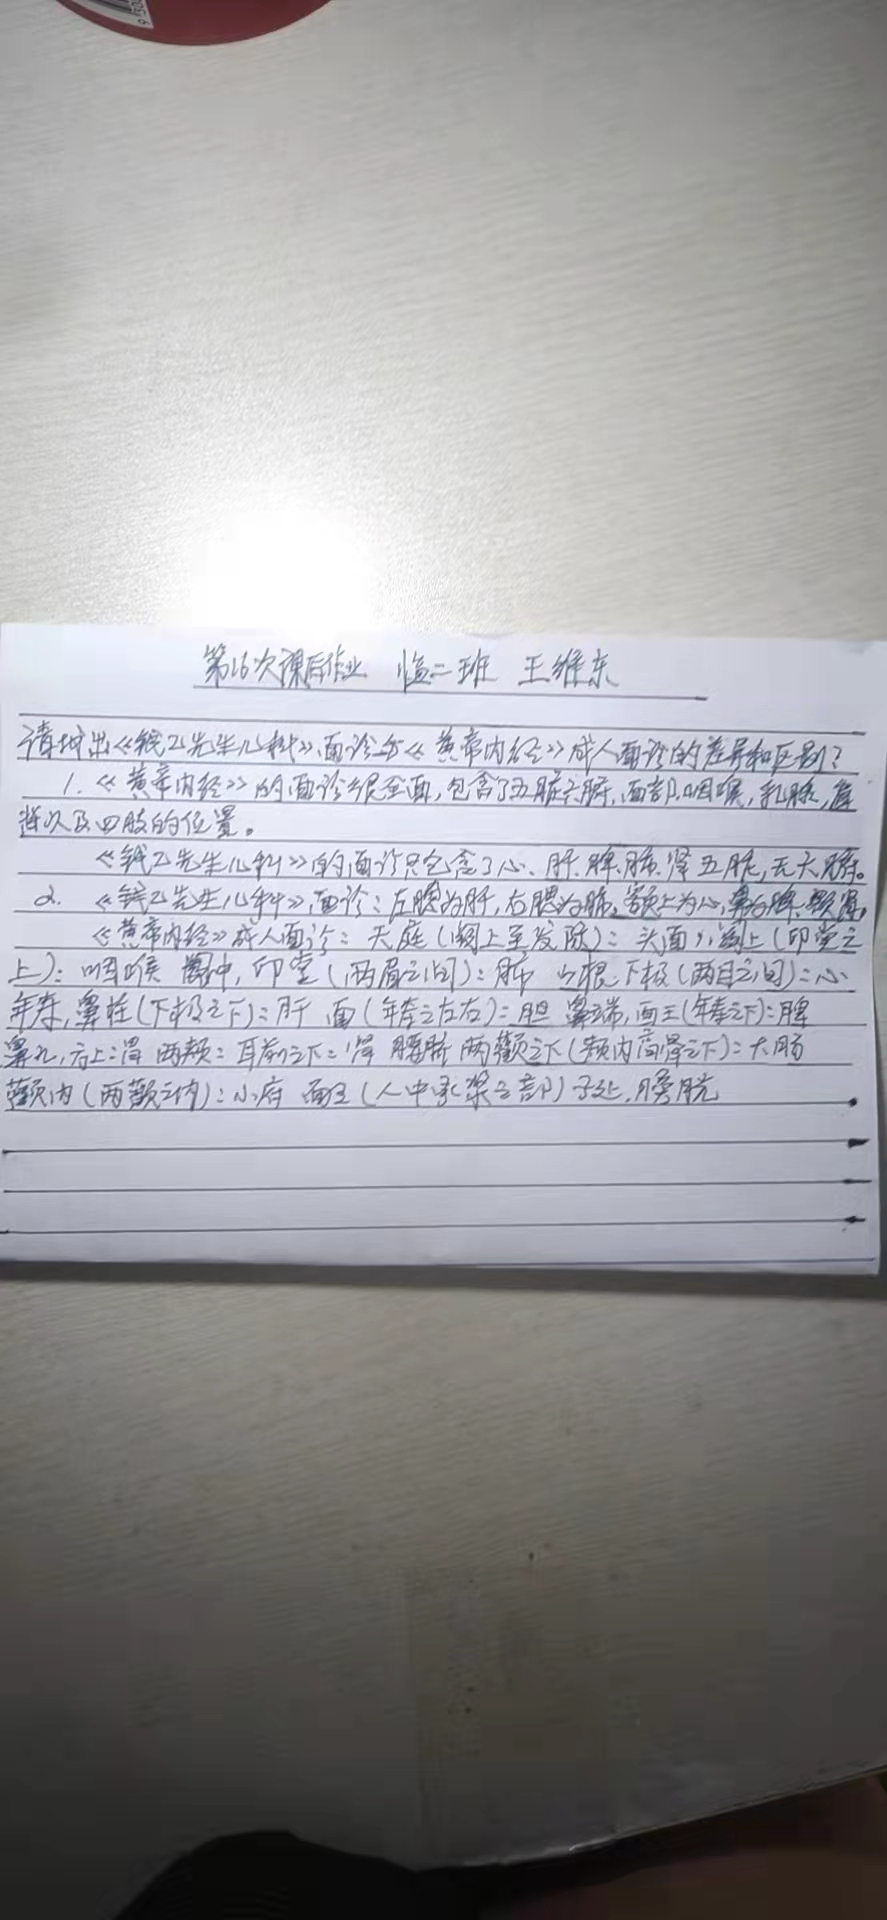 第16次课后作业 临二班 王维东
请找出《钱乙先生儿科》面诊与《黄帝内经》成人面诊的差异和区别?
1.《黄帝内经》的面诊很全面,包含了五脏六腑,面部,咽喉,乳膝,
以及四肢的位置。
《钱乙先生儿科》的面诊只包含了心、肝、脾、肺、肾五脏,无六腑。
2. 《钱乙先生儿科》面诊:左腮为肝,右腮为肺,额上为心,鼻为脾,
《黄帝内经》成人面诊:天庭(阙上至发际):头面 阙上(印堂之
上):咽喉 阙中,印堂(两眉之间):肺 山根,下极(两目之间):心
年寿,鼻柱(下极之下):肝 面(年寿之左右):胆 鼻端,面王(年寿之下):脾
鼻孔,方上:胃 两颊:耳前之下:肾 两颧之下(颊内高骨之下):大肠
颧内(两颧之内):小府 面王(人中承浆之部)子处,膀胱